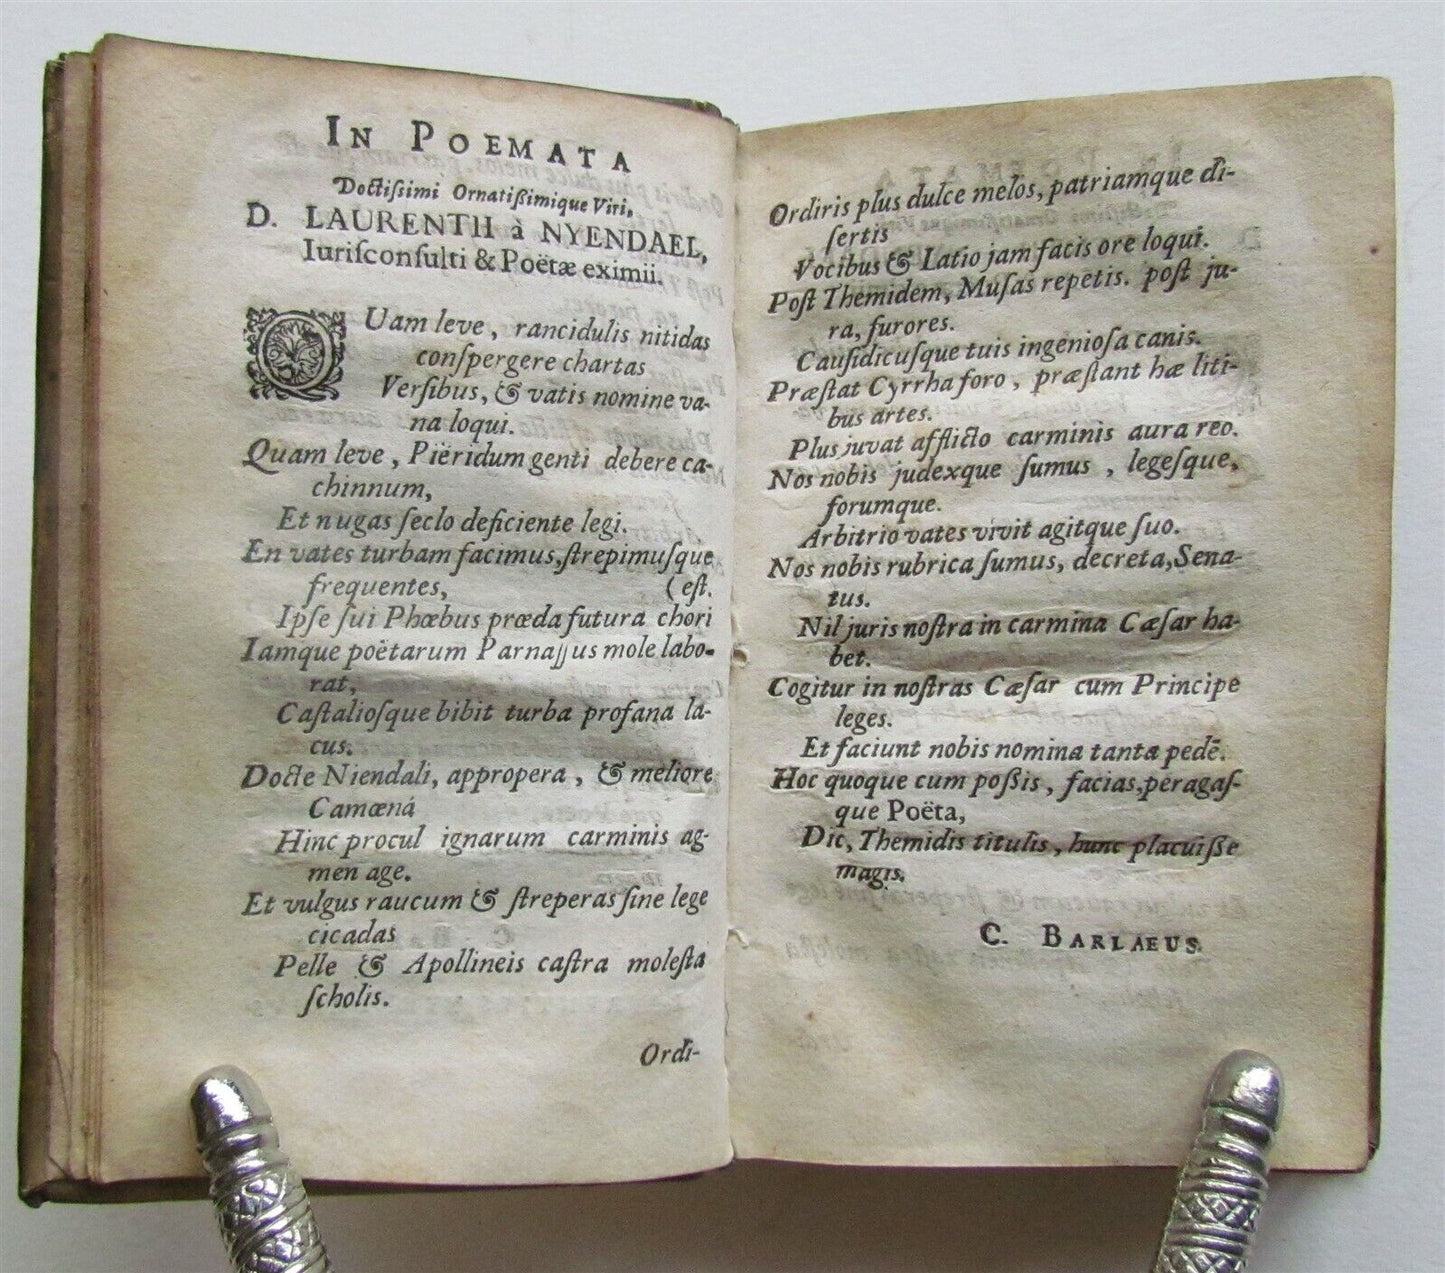 IN POEMATA
Doctiſsimi Ornatißimique Viri,
D. LAURENTII à NYENDAEL,
Iuriſconſulti & Poëtæ eximii.
QUam leve, rancidulis nitidas
conſpergere chartas
Verſibus, & vatis nomine va-
na loqui.
Quam leve, Piëridum genti debere ca-
chinnum,
Et nugas ſeclo deficiente legi.
En vates turbam facimus, ſtrepimuſque
frequentes, (eſt.
Ipſe ſui Phœbus præda futura chori
Iamque poëtarum Parnaſſus mole labo-
rat,
Caſtalioſque bibit turba profana la-
cus.
Docte Niendali, appropera, & meliore
Camœná
Hinc procul ignarum carminis ag-
men age.
Et vulgus raucum & ſtreperas ſine lege
cicadas
Pelle & Apollineis caſtra moleſta
ſcholis.
Ordi-
Ordiris plus dulce melos, patriamque di-
ſertis
Vocibus & Latio jam facis ore loqui.
Poſt Themidem, Muſas repetis. poſt ju-
ra, furores.
Cauſidicuſque tuis ingenioſa canis.
Præſtat Cyrrha foro, præſtant hæ liti-
bus artes.
Plus juvat afflicto carminis aura reo.
Nos nobis judexque ſumus, legeſque,
forumque.
Arbitrio vates vivit agitque ſuo.
Nos nobis rubrica ſumus, decreta, Sena-
tus.
Nil juris noſtra in carmina Cæſar ha-
bet.
Cogitur in noſtras Cæſar cum Principe
leges.
Et faciunt nobis nomina tanta pedē.
Hoc quoque cum poßis, facias, peragaſ-
que Poëta,
Dic, Themidis titulis, hunc placuiſſe
magis.
C. BARLAEUS.